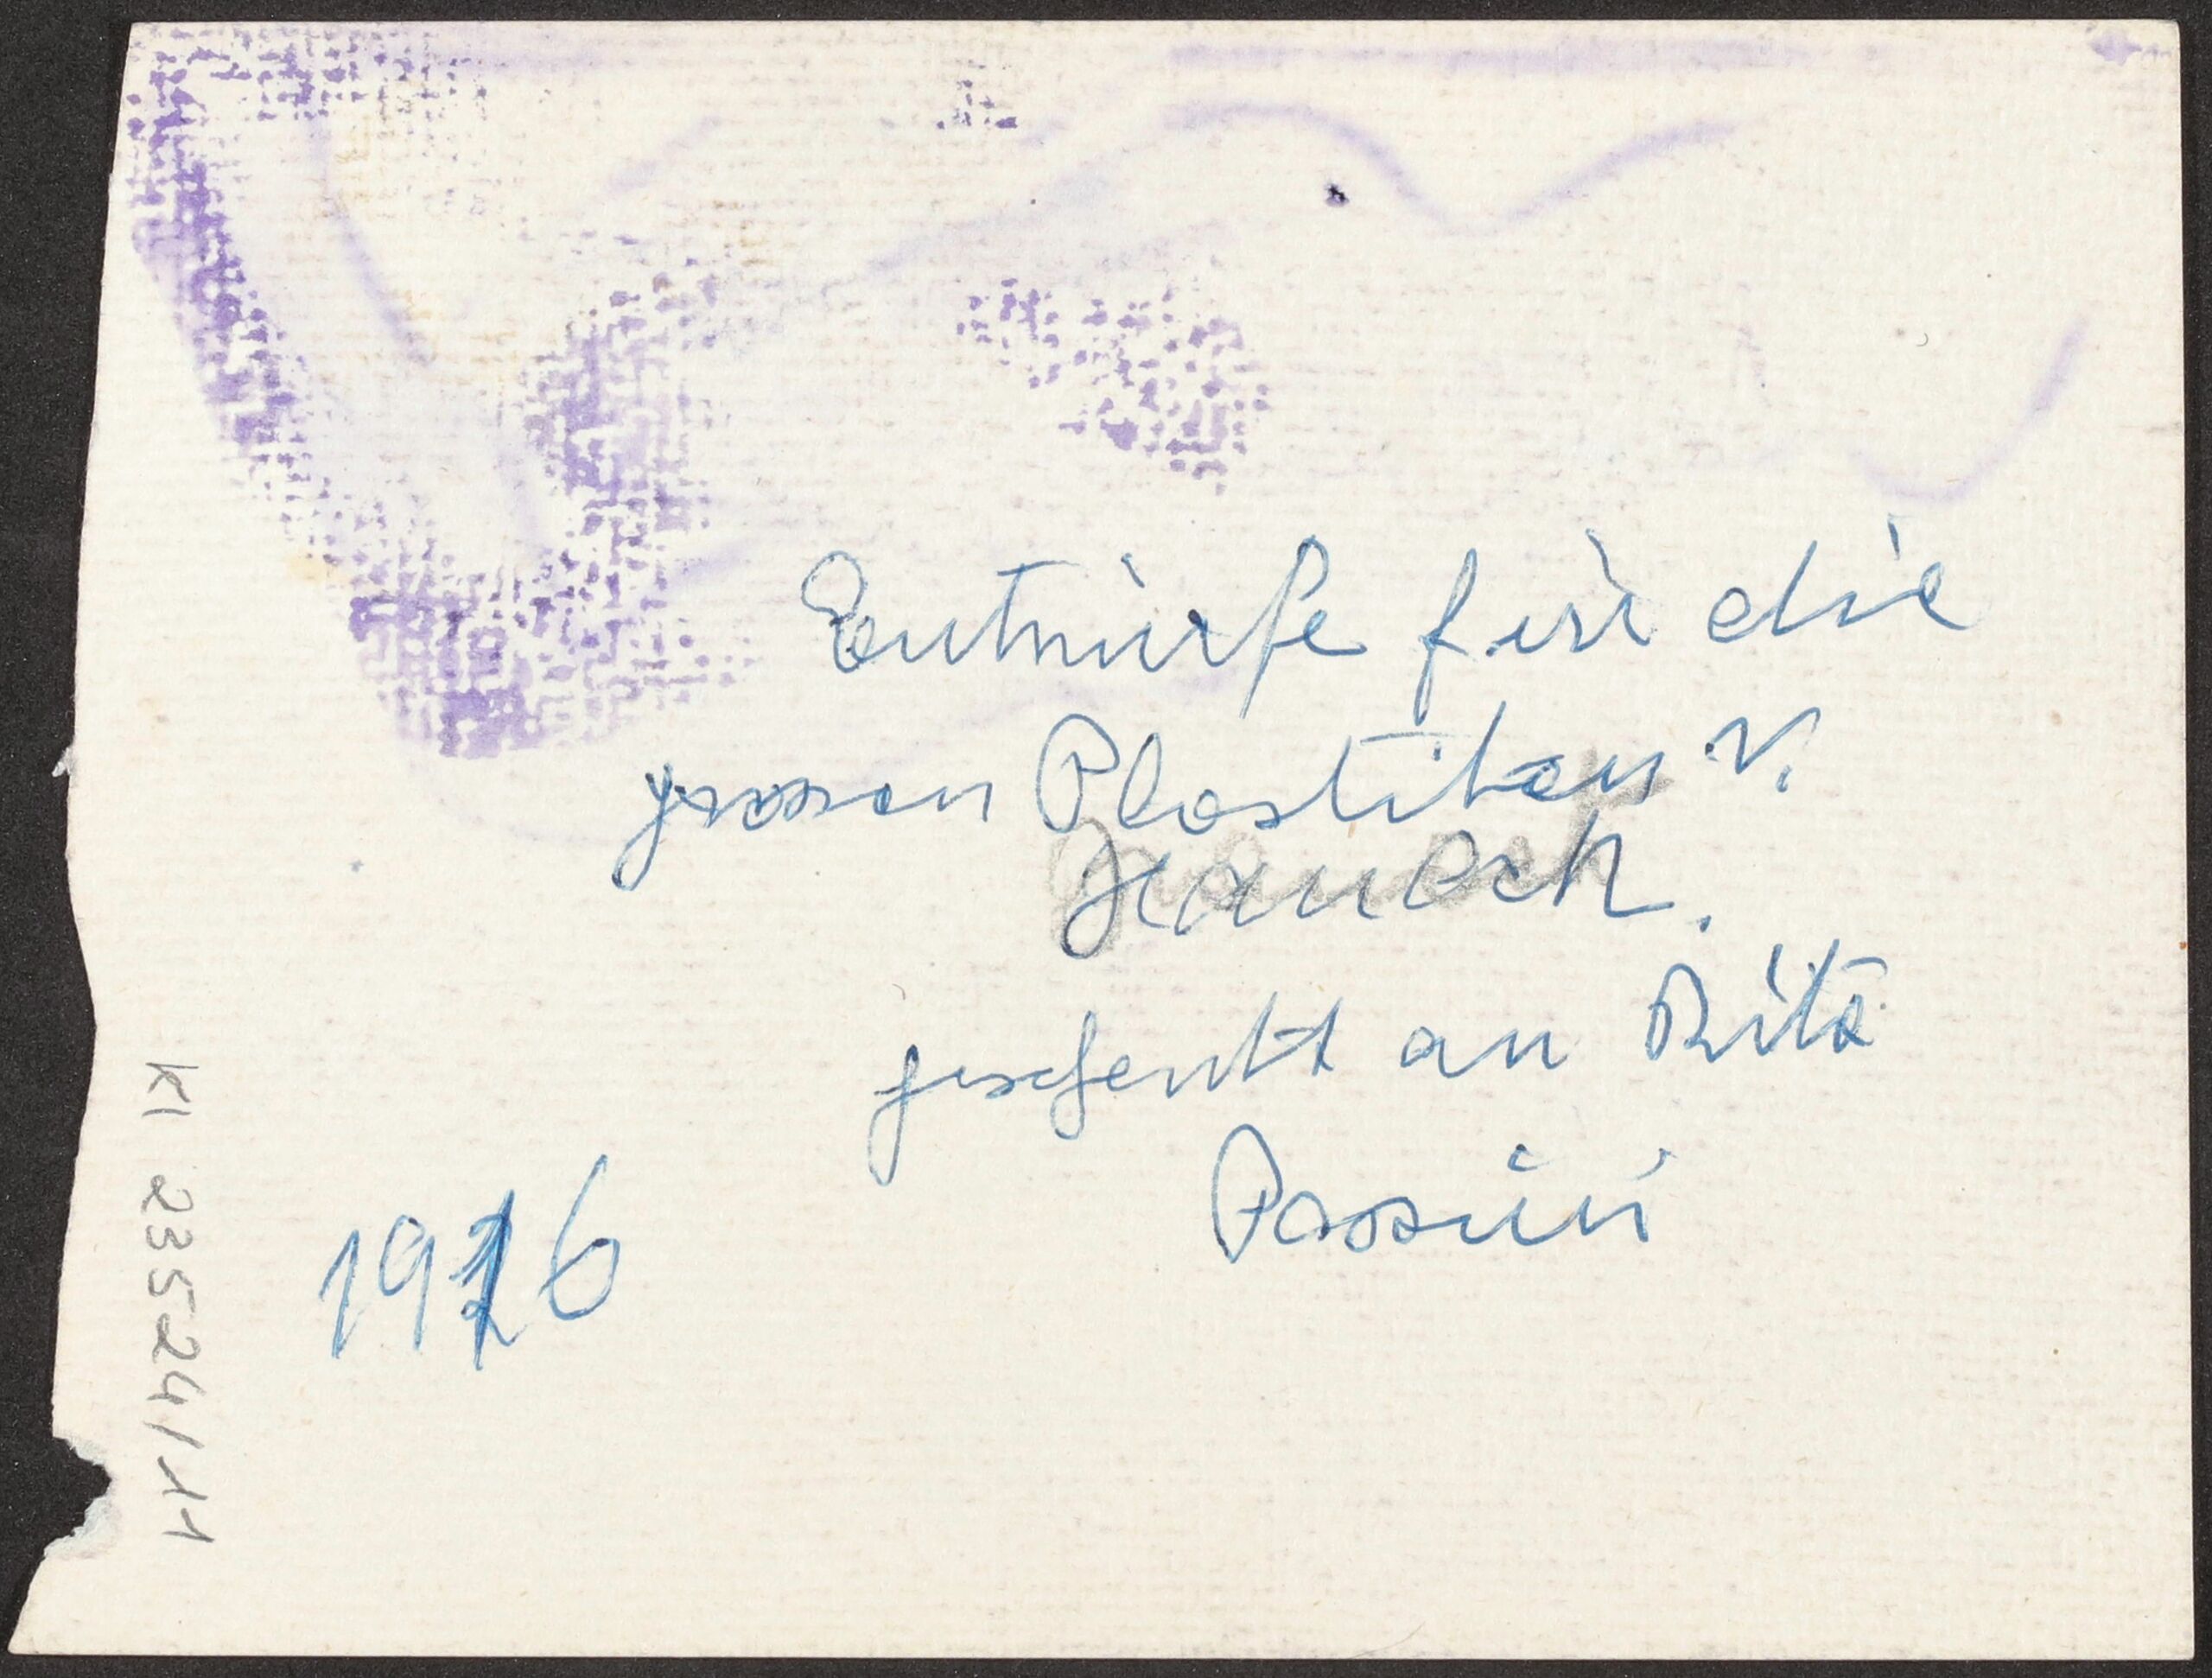 Entwürfe für die
grossen Plastiken v.
Hanak.
geschenkt an Rita
Passini
1926
KI 23524/11